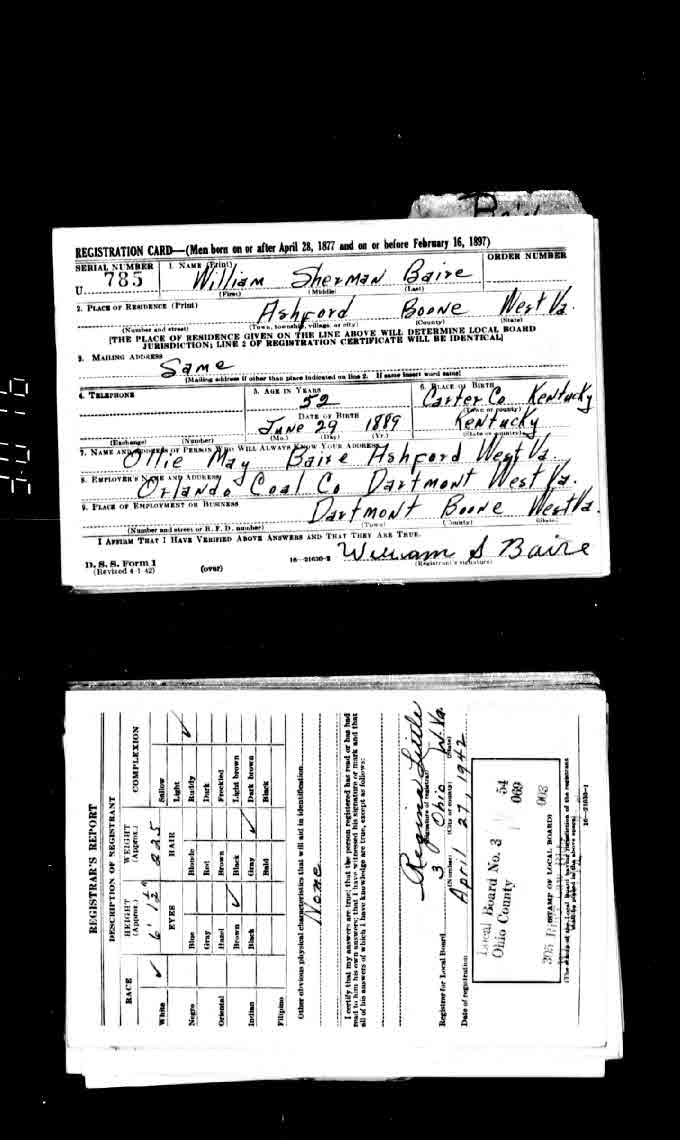 Baire
REGISTRATION CARD—(Men born on or after April 28, 1877 and on or before February 16, 1897)
SERIAL NUMBER
1. NAME (Print)
ORDER NUMBER
U 785
William Sherman Baire
(First) (Middle) (Last)
2. PLACE OF RESIDENCE (Print)
Ashford Boone West Va.
(Number and street) (Town, township, village, or city) (County) (State)
[THE PLACE OF RESIDENCE GIVEN ON THE LINE ABOVE WILL DETERMINE LOCAL BOARD
JURISDICTION; LINE 2 OF REGISTRATION CERTIFICATE WILL BE IDENTICAL]
3. MAILING ADDRESS
Same
[Mailing address if other than place indicated on line 2. If same insert word same]
4. TELEPHONE
5. AGE IN YEARS
6. PLACE OF BIRTH
52
Carter Co Kentucky
DATE OF BIRTH
(Town or county)
June 29 1889
Kentucky
(Exchange) (Number)
(Mo.) (Day) (Yr.)
(State or country)
7. NAME AND ADDRESS OF PERSON WHO WILL ALWAYS KNOW YOUR ADDRESS
Ollie May Baire Ashford West Va.
8. EMPLOYER'S NAME AND ADDRESS
Orlando Coal Co Dartmont West Va.
9. PLACE OF EMPLOYMENT OR BUSINESS
Dartmont Boone West Va.
(Number and street or R. F. D. number) (Town) (County) (State)
I AFFIRM THAT I HAVE VERIFIED ABOVE ANSWERS AND THAT THEY ARE TRUE.
D. S. S. Form 1
(Revised 4-1-42)
(over)
16—21630-2
William S Baire
(Registrant's signature)
REGISTRAR'S REPORT
DESCRIPTION OF REGISTRANT
RACE
HEIGHT
(Approx.)
WEIGHT
(Approx.)
COMPLEXION
White ✓
6' 1½"
225
Sallow
EYES
HAIR
Light
Negro
Blue
Blonde
Ruddy ✓
Gray
Red
Dark
Oriental
Hazel
Brown
Freckled
Brown ✓
Black
Light brown
Indian
Black
Gray ✓
Dark brown
Bald
Black
Filipino
Other obvious physical characteristics that will aid in identification
None
I certify that my answers are true; that the person registered has read or has had
read to him his own answers; that I have witnessed his signature or mark and that
all of his answers of which I have knowledge are true, except as follows:
Regina Little
(Signature of registrar)
Registrar for Local Board 3 Ohio W. Va.
(Number) (City or county) (State)
Date of registration April 27, 1942
Local Board No. 3 54
Ohio County 069
003
(STAMP OF LOCAL BOARD)
(The stamp of the Local Board having jurisdiction of the registrant
shall be placed in the above space)
16—21630-1